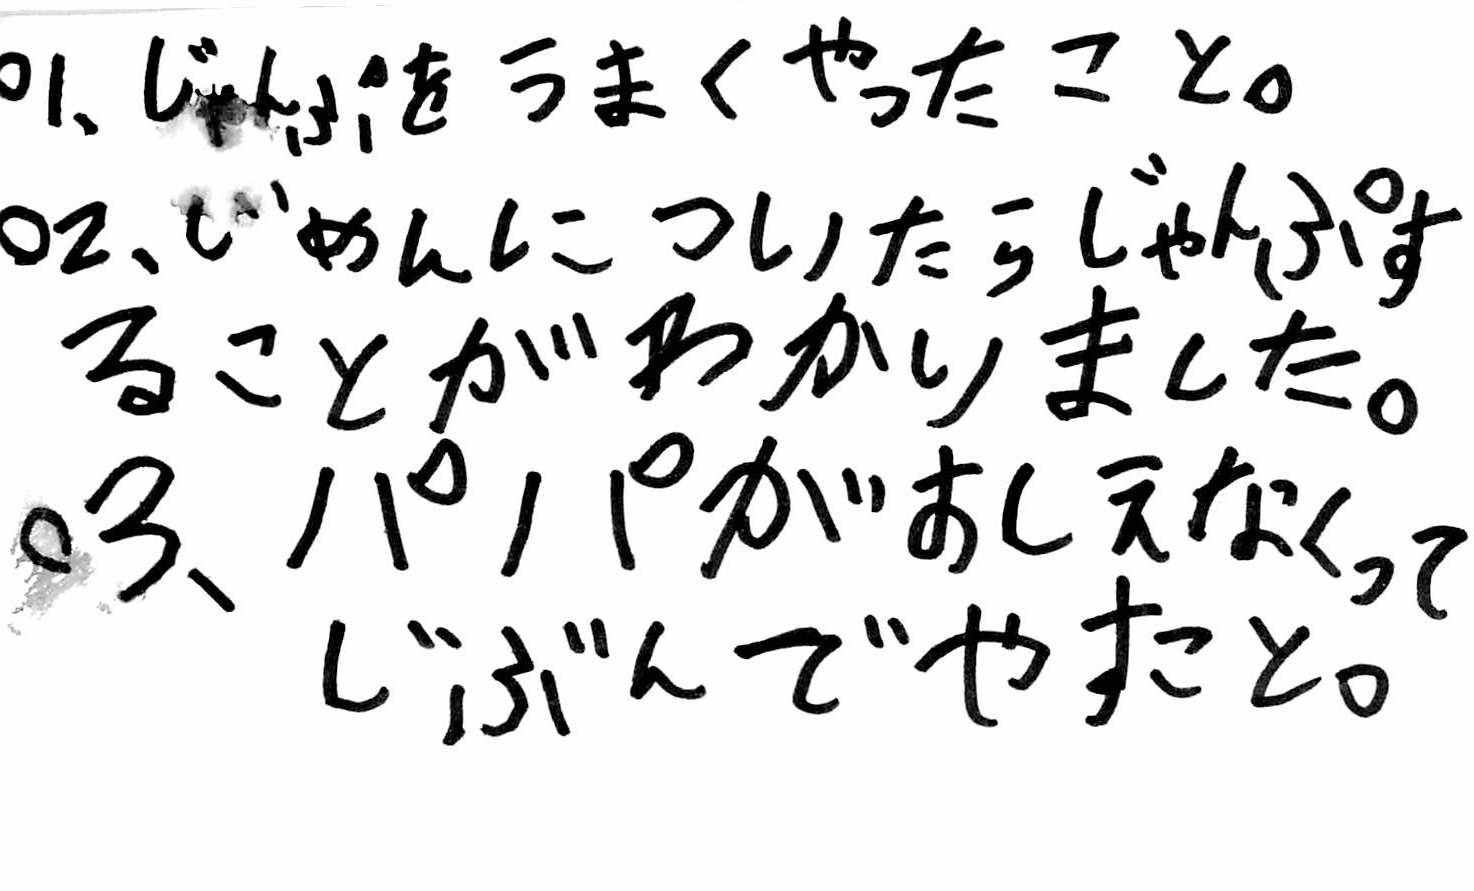 01、じゃんぷをうまくやったこと。
02、じめんについたらじゃんぷす
ることがわかりました。
03、パパがおしえなくって
じぶんでやすこと。